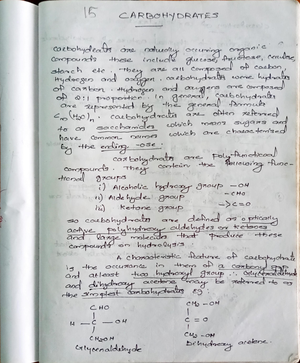 15
CARBOHYDRATES
Carbohydrates are naturally occuring organic
compounds these include glucose, fructose, cellulose,
starch etc. They are all composed of carbon,
Hydrogen and oxygen. carbohydrates were hydrates
of carbon. Hydrogen and oxygens are composed
of 2:1 proportions. In general, Carbohydrates
are represented by the general formula
Carbohydrates are often referred
to as saccharides which means sugars and
have common names which are characterised
by the ending -ose.
Carbohydrates are poly-functional
compounds. They contain the following func-
tional groups
i) Alcoholic hydroxy group -OH
ii) Aldehyde group -CHO
iii) Ketone group >C=O
so carbohydrates are defined as optically
active polyhydroxy aldehydes or ketones
and large molecules that produce these
compounds on hydrolysis
A characteristic feature of carbohydrate
is the occurance in them of a carbonyl group
and atleast two hydroxyl group. Glyceraldehyde
and dihydroxy acetone may be referred to as
the simplest carbohydrates
CHO CH2-OH
H-C-OH C=O
CH2OH CH2-OH
Glyceraldehyde Dihydroxy acetone